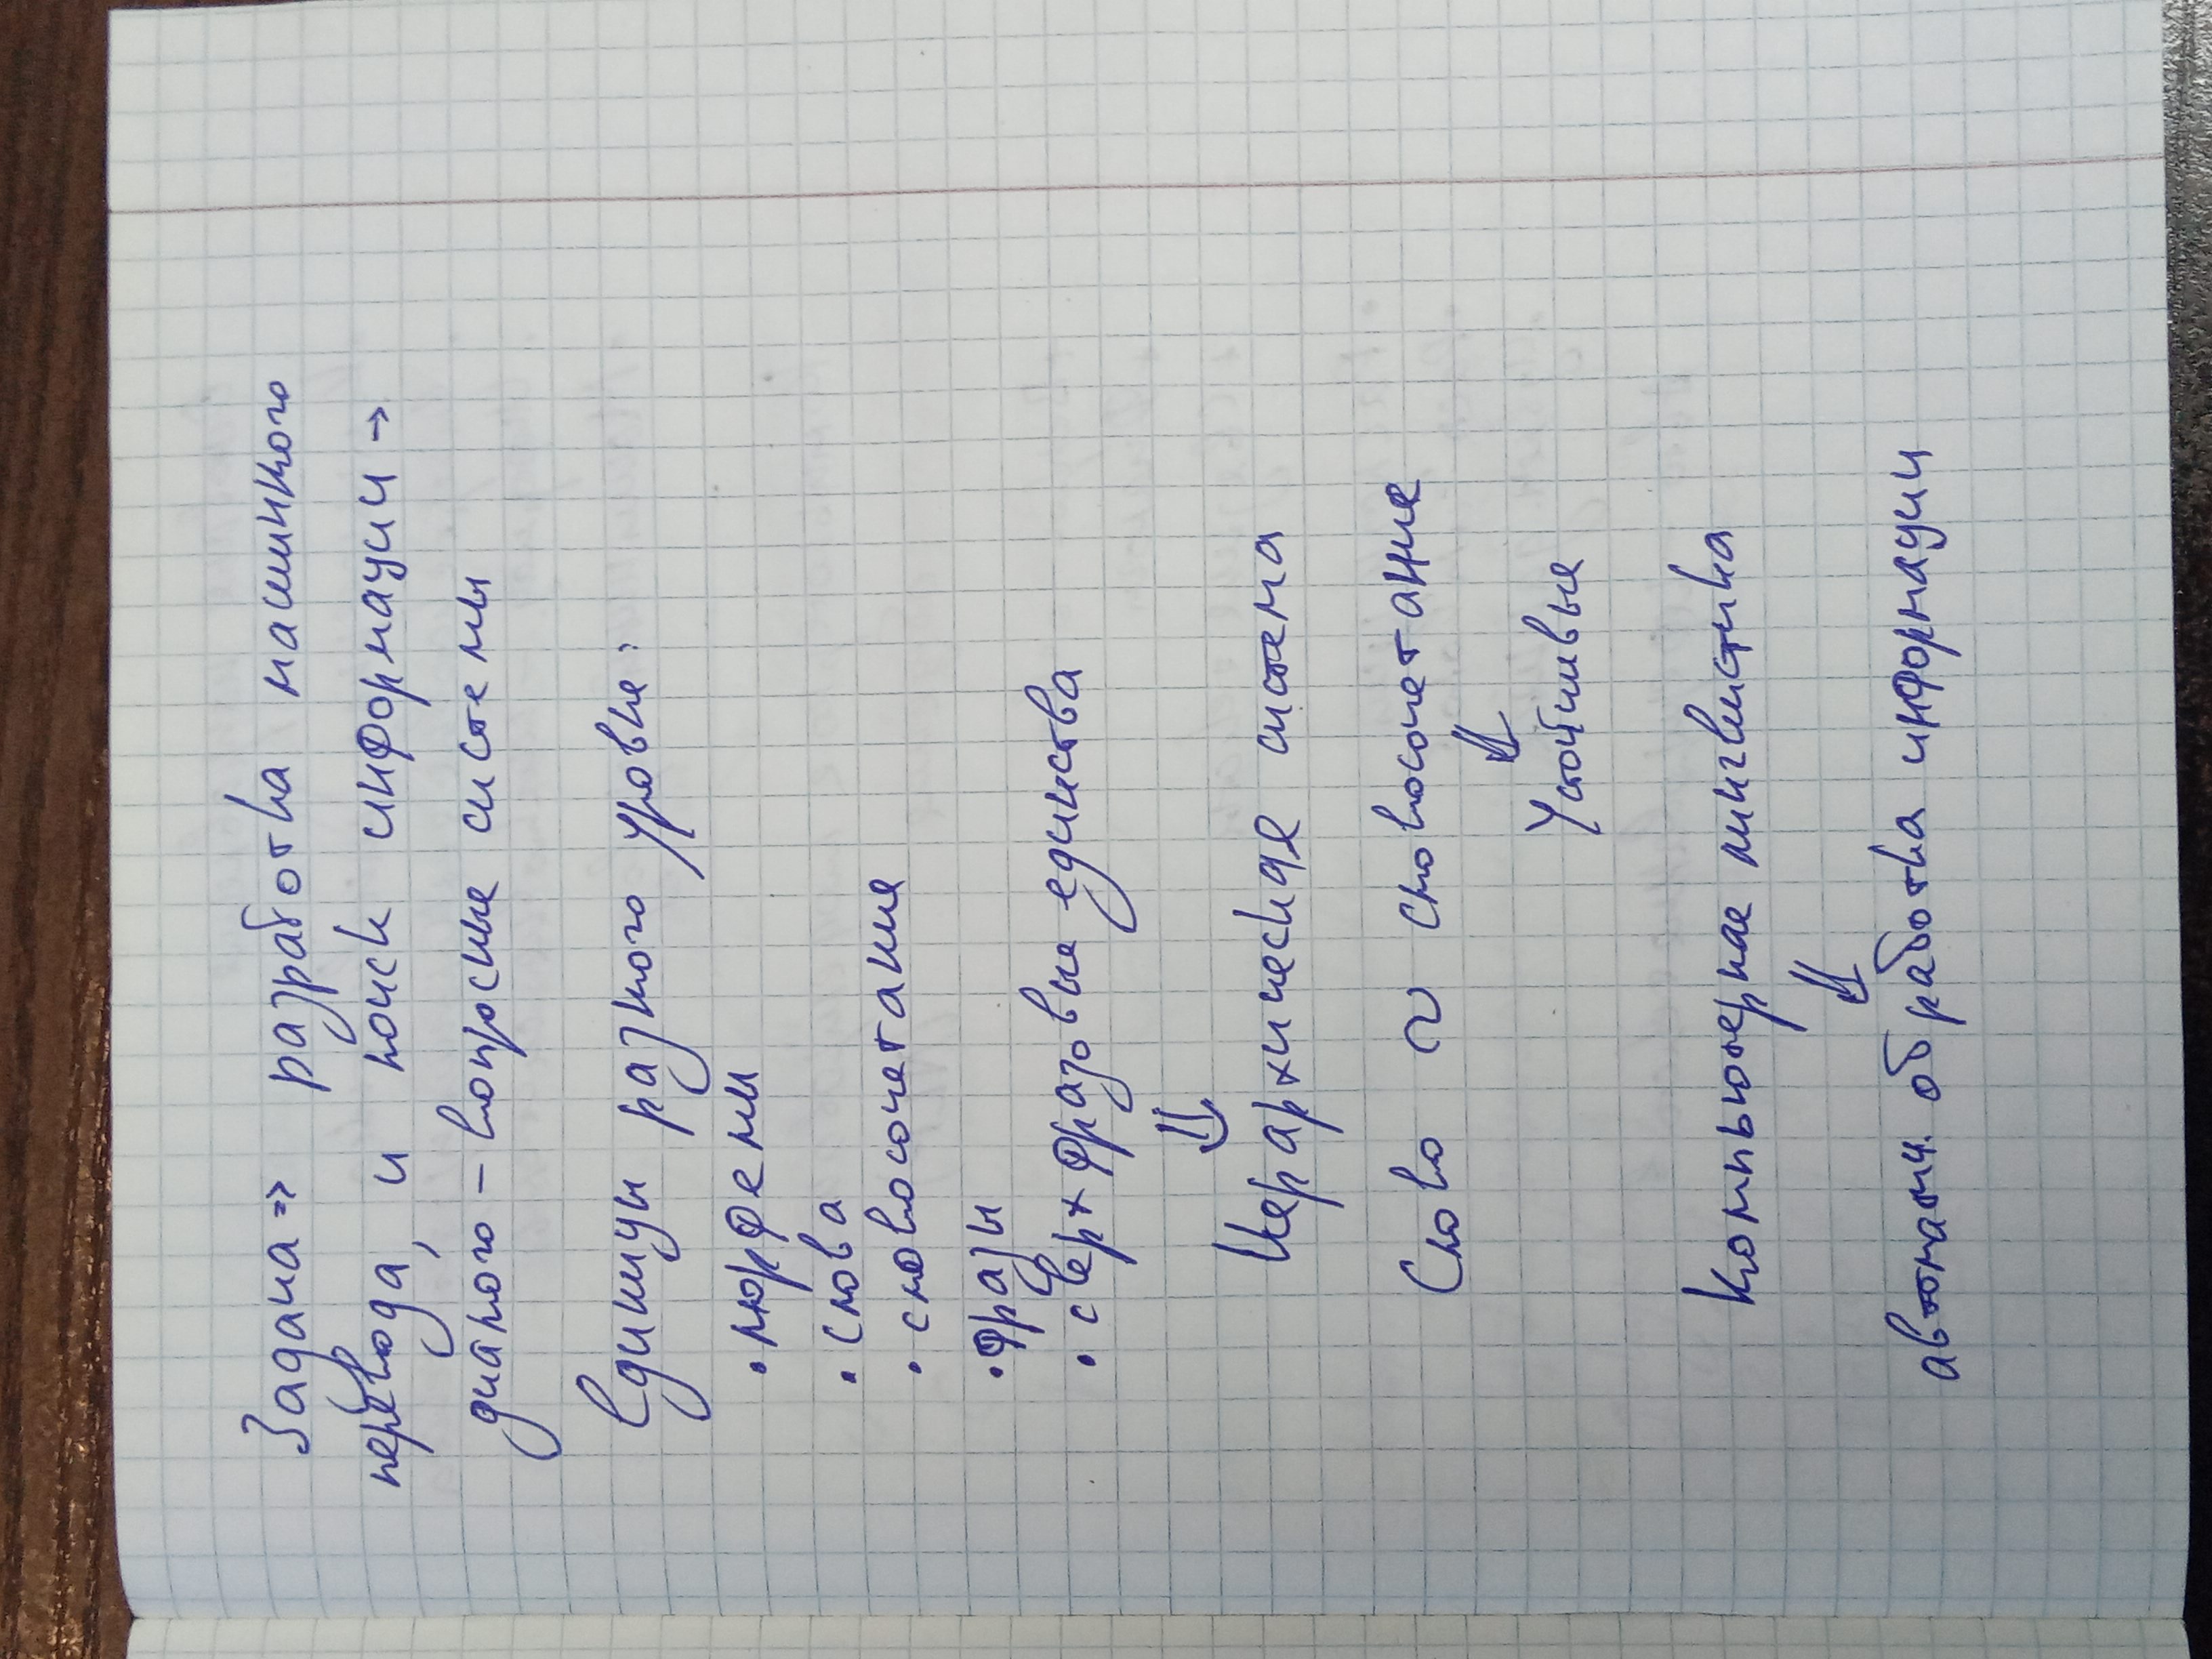 Задача => разработка машинного
перевода, и поиск информации →
диалого - вопросные системы
Единицы разного уровня:
• морфемы
• слова
• словосочетание
• фразы
• сверхфразовые единства
⇓
Иерархическая система
Слово ~ словосочетание
⇓
Устойчивые
Компьютерная лингвистика
⇓
автоматич. обработка информации